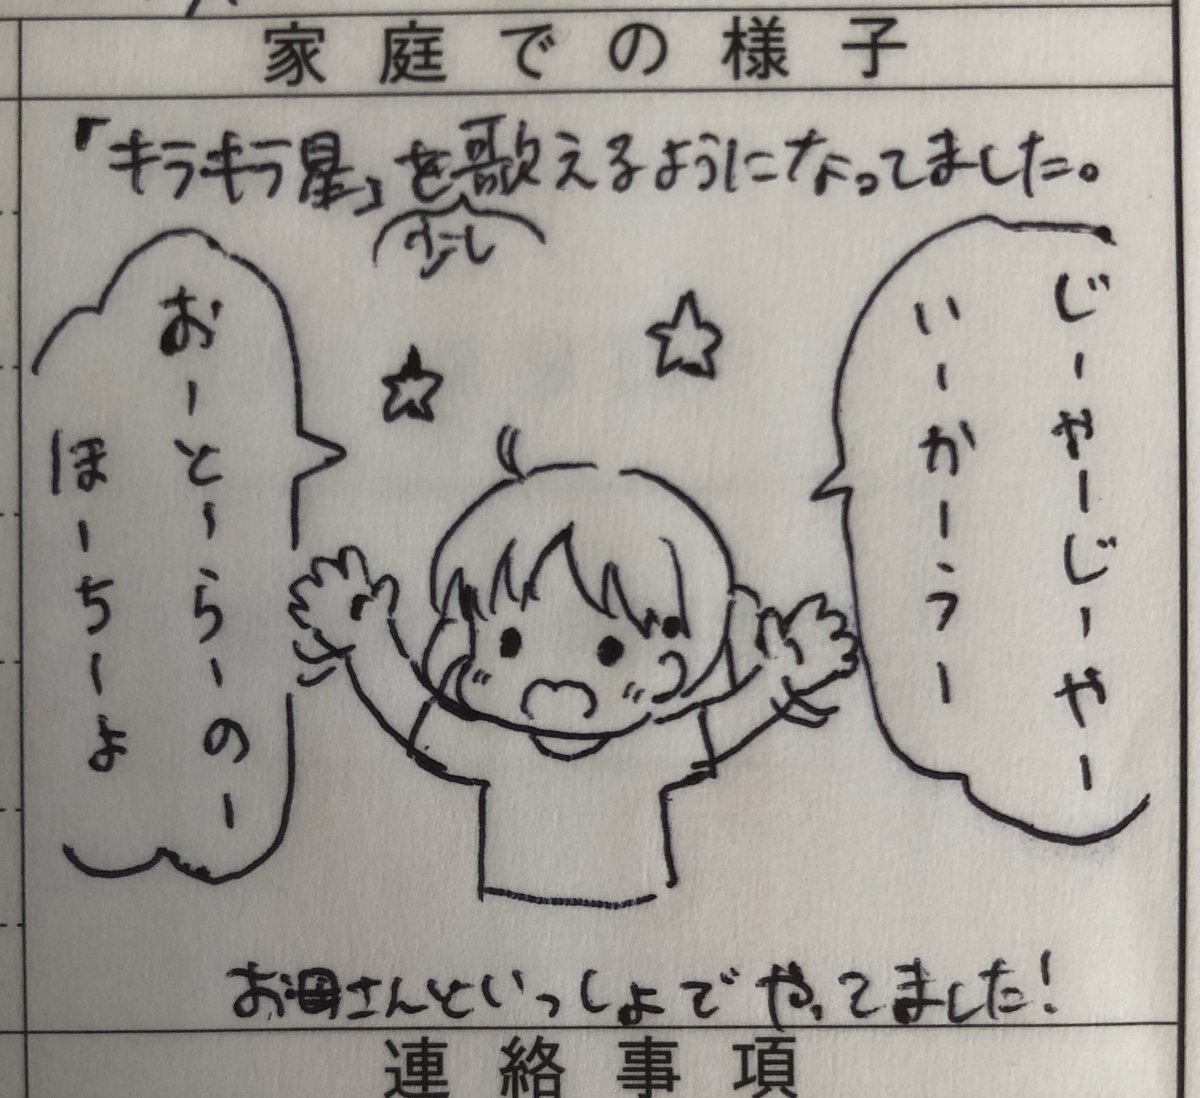 家庭での様子
「キラキラ星」を歌えるようになってました。
すこし
じーやーじーやー
いーかーうー
おーとーらーのー
ほーちーよ
お母さんといっしょでやってました!
連絡事項